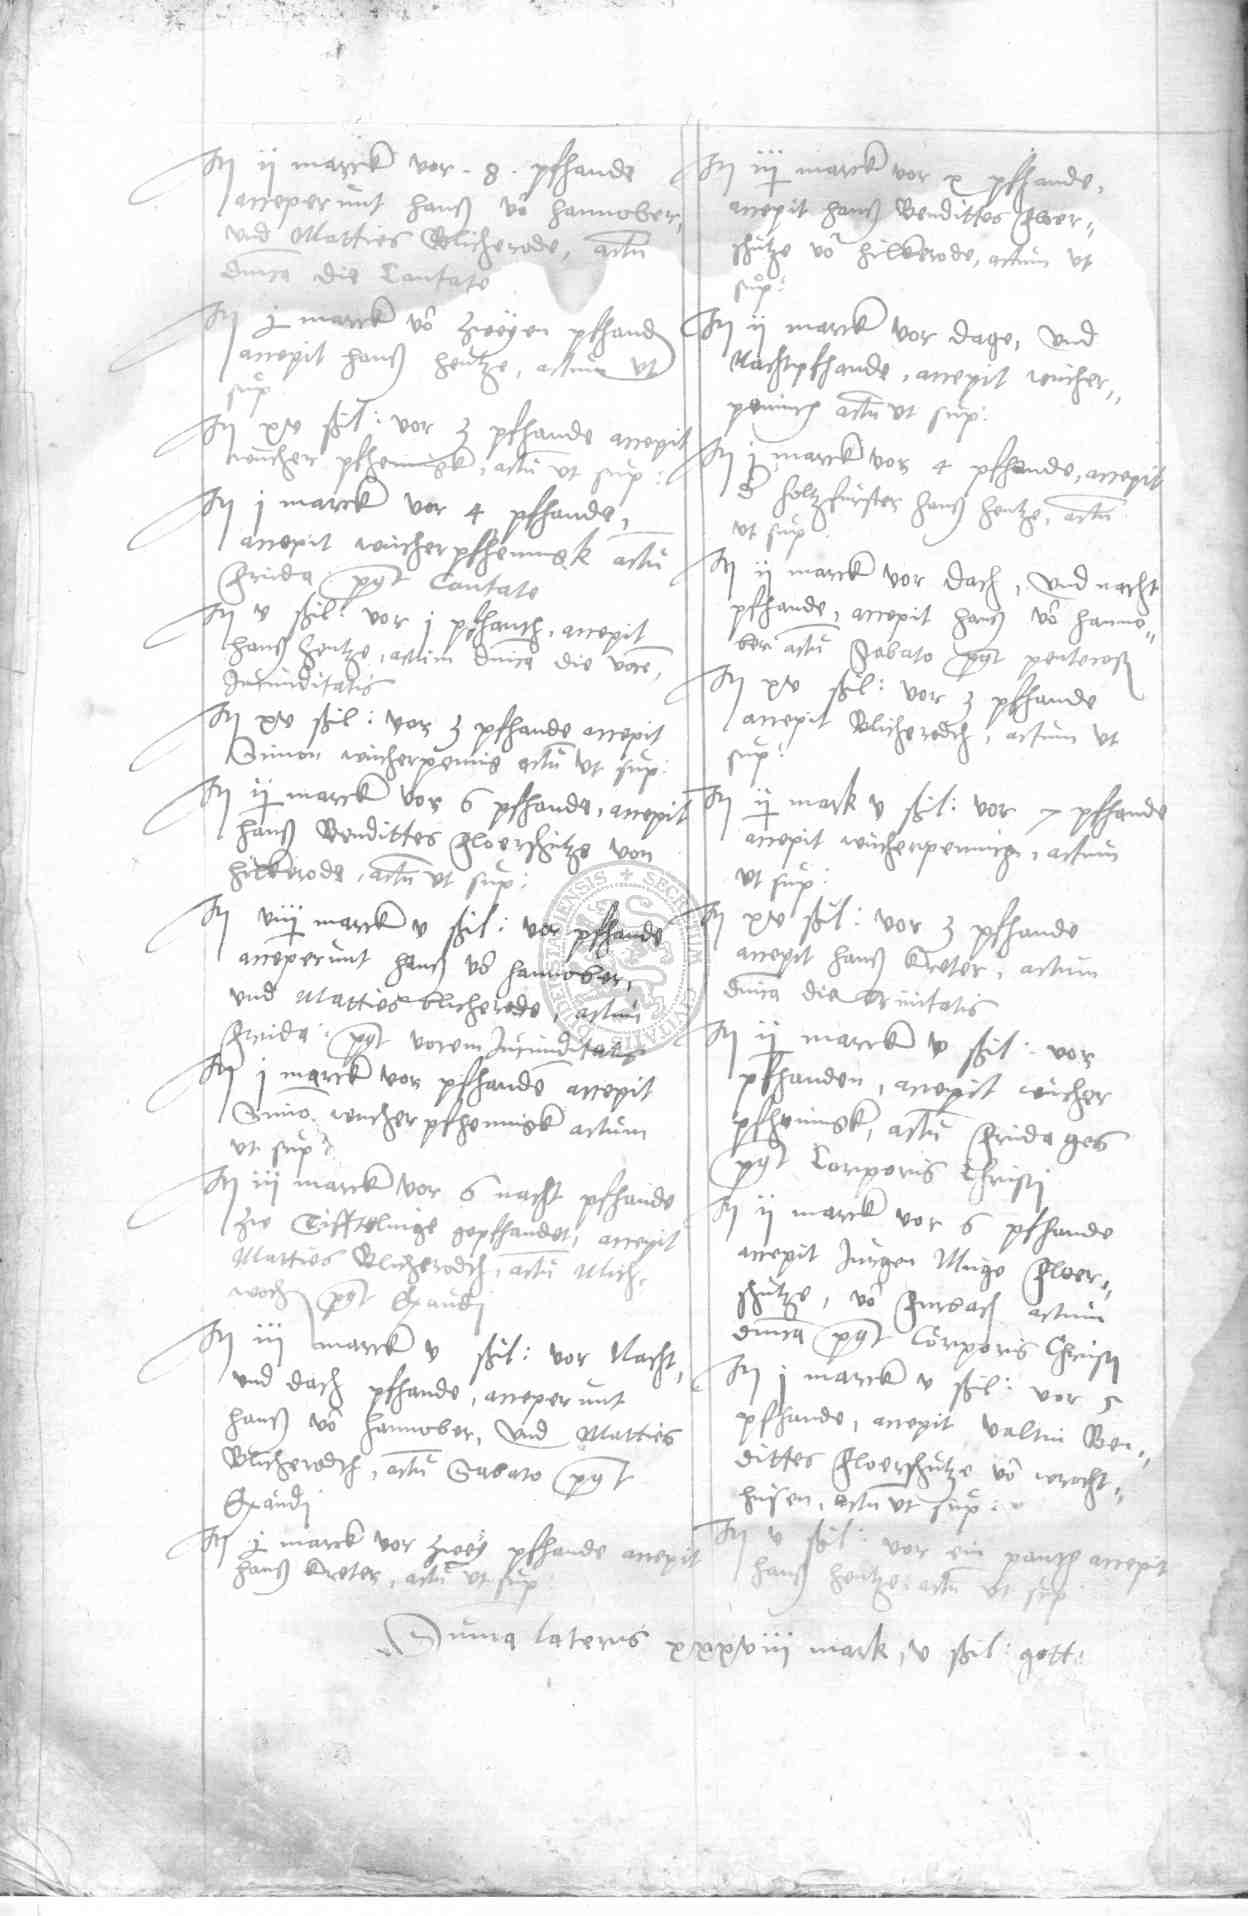 It ij marck vor . 8 . pfhande
acceperunt hanß vō hannober,
und Matties Blicherode, actū
dn̄ica die Cantate
It j marck vō zweyen pfhand
accepit hanß hentze, actum ut
sup
It xv ßil: vor 3 pfhande accepit
wucher pfhennigk, actū ut sup:
It j marck vor 4 pfhande,
accepit wucherpfhennigk actū
Frida p9t Cantate
It v ßil: vor j pfhantz, accepit
hanß hentze, actum dn̄ica die vocē,
Jucunditatis
It xv ßil: vor 3 pfhande accepit
Simon wucherpennig actū ut sup:
It ij marck vor 6 pfhande, accepit
hanß Bendittes Floerschutze von
hilkerode, actū ut sup:
It viij marck v ßil: vor pfhande
acceperunt hanß vō hannober,
und Matties blicherode, actum
Freida: p9t vocem Jucunditatis
It j marck vor pfhande accepit
Simō wucherpfhennigk actum
ut sup:
It iij marck vor 6 nacht pfhande
zie Tifftelinge gepfhandet, accepit
Matties Blicherodh, actū Mich,
woch p9t Exaudi
It iij marck v ßil: vor Nacht,
und dach pfhande, acceperunt
hanß vō hannober, und Matties
Blicherodh, actū Sabato p9t
Exaudi
It j marck vor zweÿ pfhande accepit
hanß Kreter, actū ut sup:
It iij marck vor x pfhande,
accepit hanß Bendittes Floer,,
schutze vō hilkerode, actum ut
sup:
It ij marck vor dage, und
Nachtpfhande, accepit wucher,,
penninch actū ut sup:
It j marck vor 4 pfhande, accepit
d holtzfurster hanß hentze, actū
ut sup:
It ij marck vor dach, und nacht
pfhande, accepit hanß vō hanno,,
ber actū Sabato p9t pentecoß
It xv ßil: vor 3 pfhande
accepit Blicherodh, actum ut
sup:
It ij mark v ßil: vor 7 pfhande
accepit wucherpenninch, actum
ut sup:
It xv ßil: vor 3 pfhande
accepit hanß Kreter, actum
dn̄ica die trinitatis
It ij marck v ßil: vor
pfhanden, accepit wucher
pfhennigk, actū Fridages
p9t Corporis Christi
It ij marck vor 6 pfhande
accepit Jurgen Muge Floer,,
schutze, vō Furbach actum
dn̄ica p9t Corporis Christi
It j marck v ßil: vor 5
pfhande, accepit valtin Ben,,
dittes Floerschutze vō wrocht,,
husen, actū ut sup:
It v ßil: vor ein pantz accepit
hanß hentze actū ut sup
Suma lateris xxxviij mark, v ßil: gott:
SECRETUM CIVITATIS DUDERSTADIENSIS